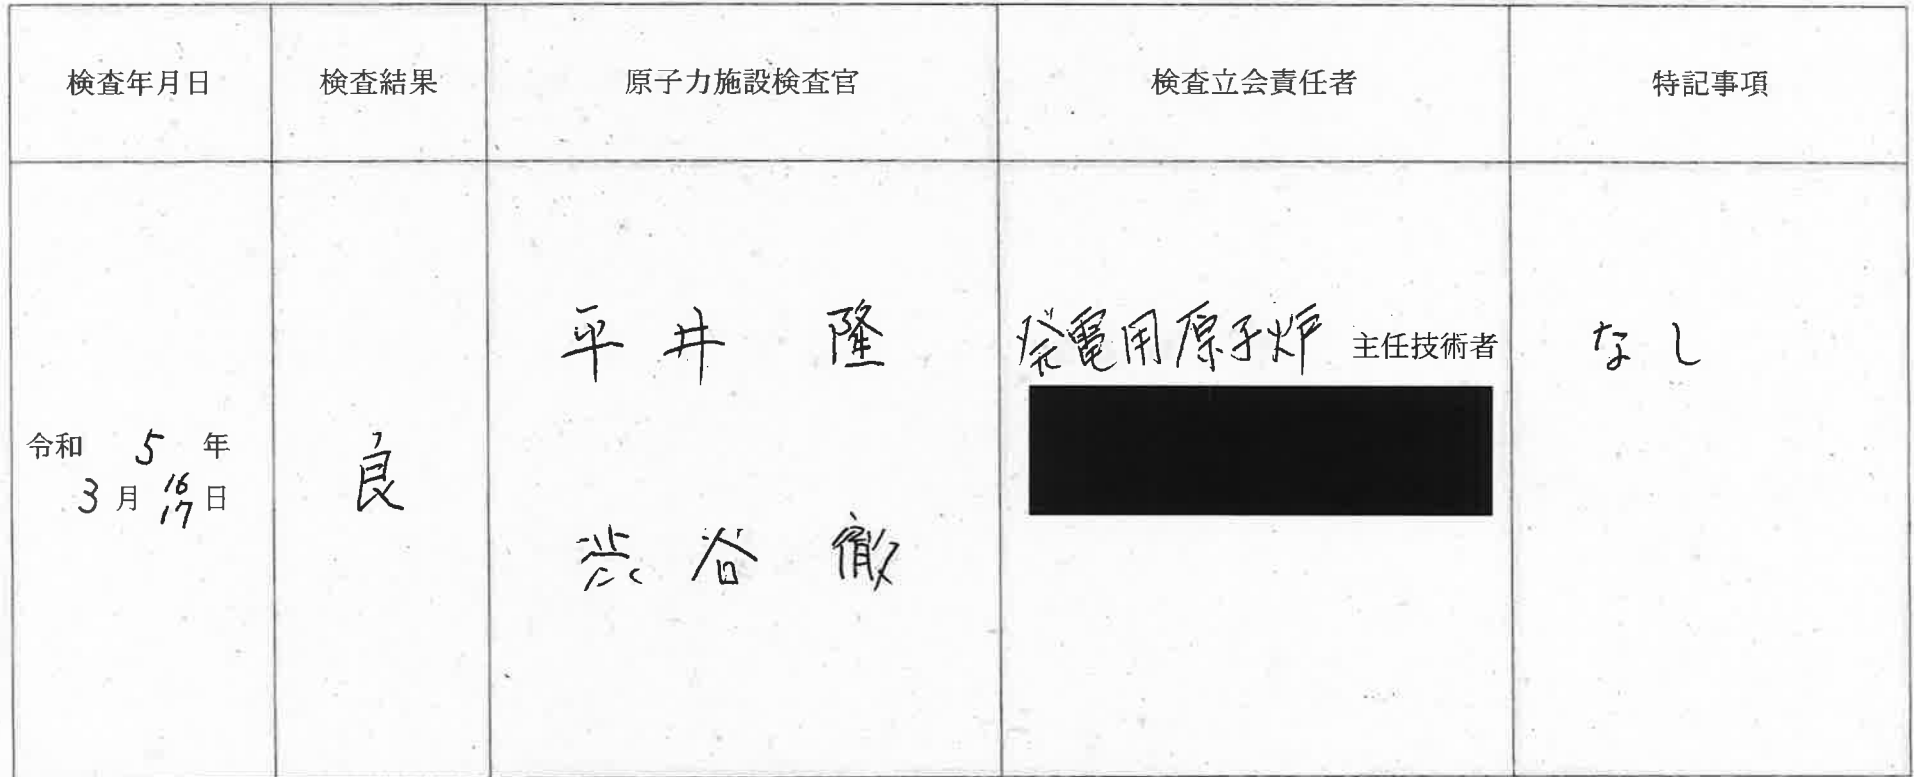 検査年月日
検査結果
原子力施設検査官
検査立会責任者
特記事項
令和 5 年
3 月 16 17 日
良
平井 隆
渋谷 徹
発電用原子炉 主任技術者
なし